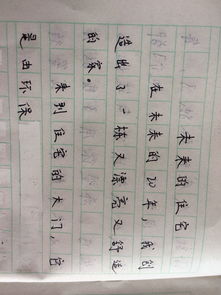 未来的住宅
在未来的20年,我创
造出了一栋又漂亮又舒适
的家。
来到住宅的大门,它
是由环保